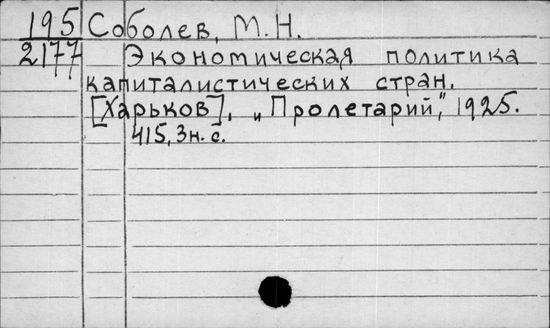 195 Соболев, М. Н.
2177 Экономическая политика
капиталистических стран.
[Харьков], „Пролетарий", 1925.
415, 3 н. с.